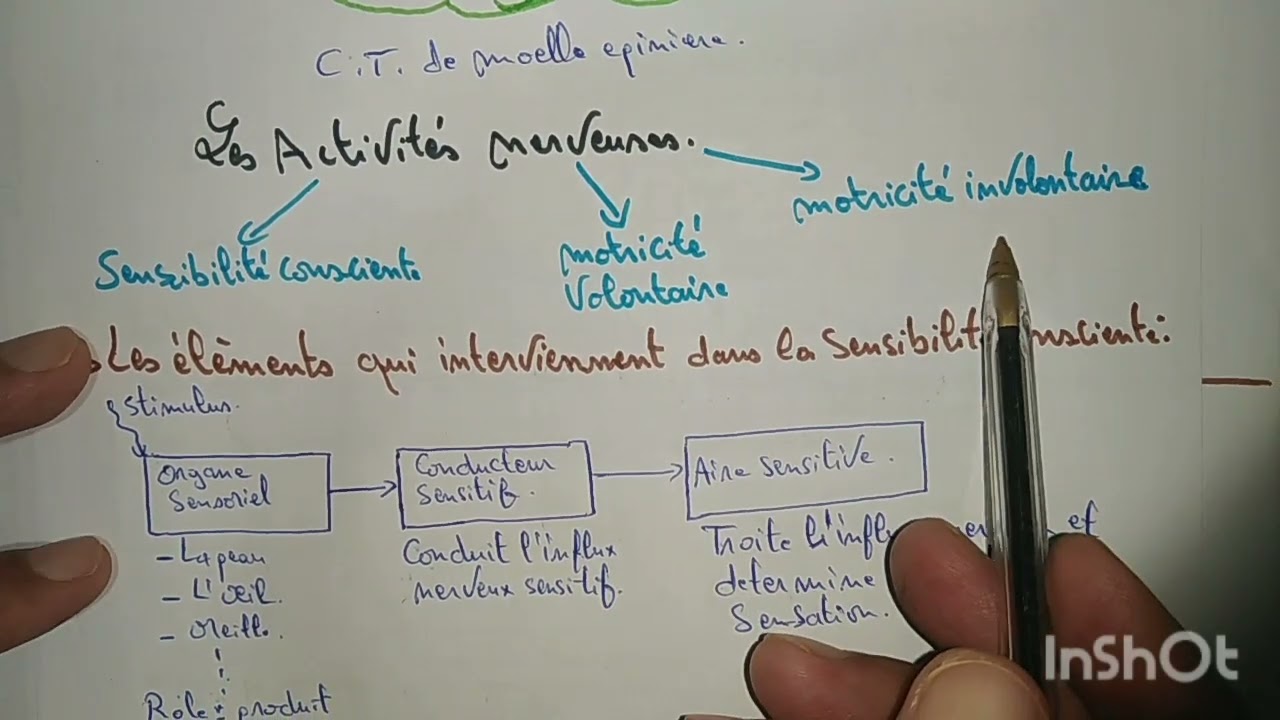 C.T. de moelle epiniere.
Les Activités nerveuses.
motricité involontaire
Sensibilité consciente
motricité
Volontaire
Les élèments qui interviennent dans la Sensibilit nsciente:
stimulus.
Organe
sensoriel
Conducteur
sensitif.
Aire sensitive.
- La peau
- L'œil.
- Oreille.
Conduit l'influx
nerveux sensitif.
Traite l'infl et
determine
Sensation.
Rôle: produit
InShOt